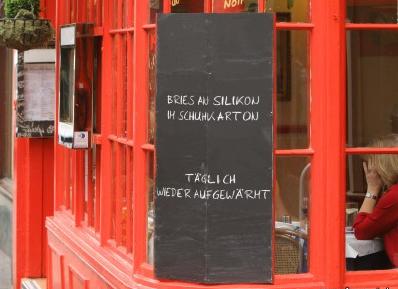 BRIES AN SILIKON
IM SCHUHKARTON
TÄGLICH
WIEDER AUFGEWÄRMT